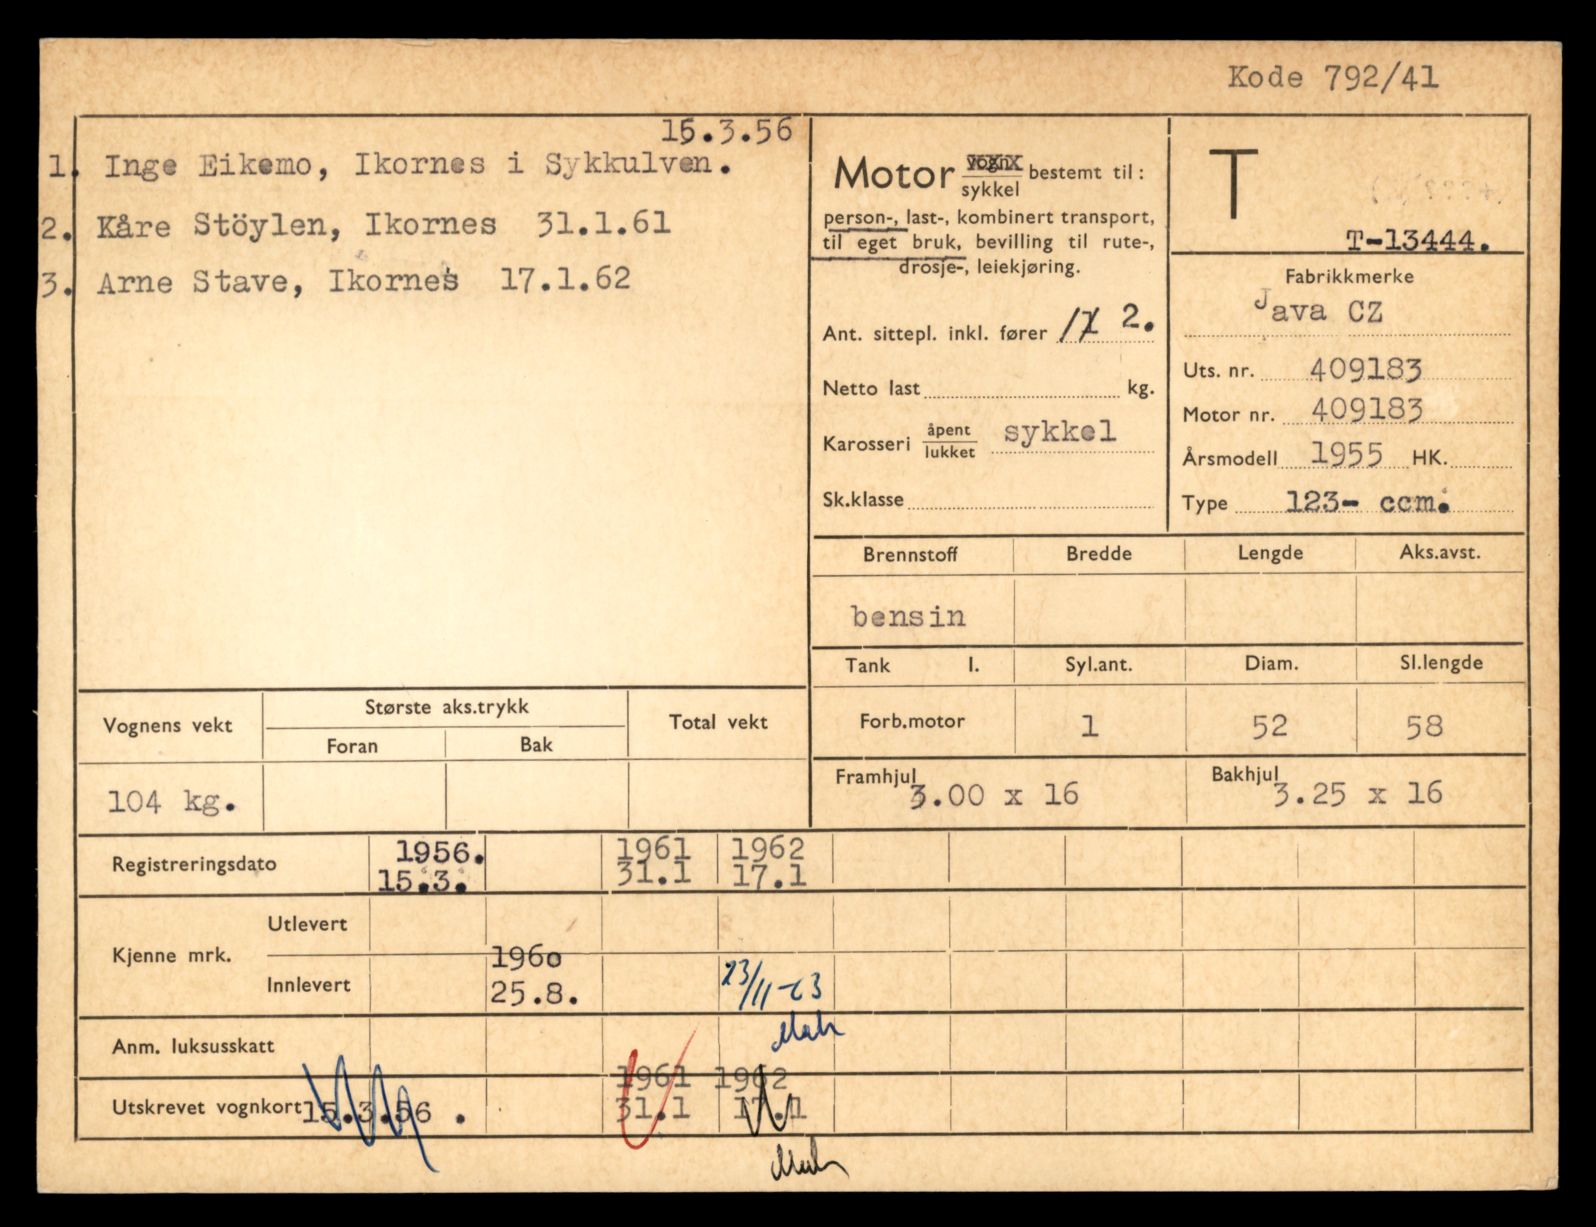 Kode 792/41
15.3.56
1. Inge Eikemo, Ikornes i Sykkulven.
2. Kåre Stöylen, Ikornes 31.1.61
3. Arne Stave, Ikornes 17.1.62
Motor vogn sykkel bestemt til:
person-, last-, kombinert transport,
til eget bruk, bevilling til rute-,
drosje-, leiekjøring.
Ant. sittepl. inkl. fører 2.
Netto last kg.
Karosseri åpent lukket sykkel
Sk.klasse
T
T-13444.
Fabrikkmerke
Java CZ
Uts. nr. 409183
Motor nr. 409183
Årsmodell 1955 HK.
Type 123- ccm.
Brennstoff Bredde Lengde Aks.avst.
bensin
Tank l. Syl.ant. Diam. Sl.lengde
Forb.motor 1 52 58
Framhjul 3.00 x 16 Bakhjul 3.25 x 16
Vognens vekt Største aks.trykk Total vekt
Foran Bak
104 kg.
Registreringsdato 1956. 1961 1962
15.3. 31.1 17.1
Utlevert
Kjenne mrk. 1960
Innlevert 25.8. 23/11-63
Anm. luksusskatt
1961 1962
Utskrevet vognkort 15.3.56 . 31.1 17.1